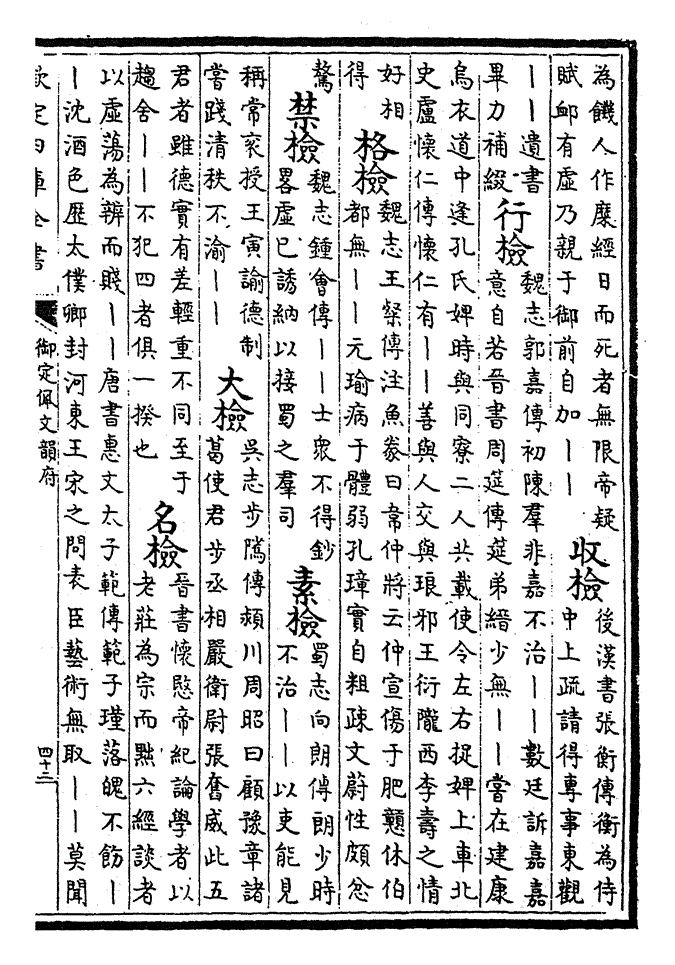 為饑人作糜經日而死者無限帝疑
賦䘏有虛乃親于御前自加丨丨
收檢
後漢書張衡傳衡為侍
中上疏請得專事東觀
丨丨遺書
畢力補綴
行檢
魏志郭嘉傳初陳羣非嘉不治丨丨數廷訴嘉嘉
意自若晉書周莚傳莚弟縉少無丨丨嘗在建康
烏衣道中逢孔氏婢時與同寮二人共載使令左右捉婢上車北
史盧懷仁傳懷仁有丨丨善與人交與琅邪王衍隴西李壽之情
好相
得
格檢
魏志王粲傳注魚豢曰韋仲將云仲宣傷于肥戇休伯
都無丨丨元瑜病于體弱孔璋實自粗疎文蔚性頗忿
鷙
禁檢
魏志鍾會傳丨丨士衆不得鈔
畧虛已誘納以接蜀之羣司
素檢
蜀志向朗傳朗少時
不治丨丨以吏能見
稱常衮授王寅諭德制
嘗踐清秩不渝丨丨
大檢
吳志步隲傳潁川周昭曰顧豫章諸
葛使君步丞相嚴衛尉張奮威此五
君者雖德實有差輕重不同至于
趨舍丨丨不犯四者俱一揆也
名檢
晉書懷愍帝紀論學者以
老莊為宗而黜六經談者
以虛蕩為辨而賤丨丨唐書惠文太子範傳範子瑾落魄不飭丨
丨沈酒色歷太僕卿封河東王宋之問表臣藝術無取丨丨莫聞
欽定四庫全書
御定佩文韻府
四十二